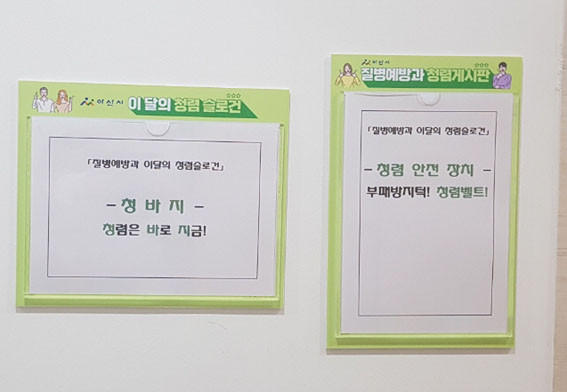 아산시 이 달의 청렴 슬로건
「질병예방과 이달의 청렴슬로건」
- 청 바 지 -
청렴은 바로 지금!
아산시
질병예방과 청렴게시판
「질병예방과 이달의 청렴슬로건」
- 청렴 안전 장치 -
부패방지턱! 청렴벨트!